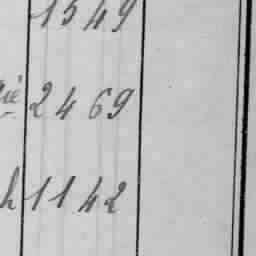 1549
ié 2469
h 1142